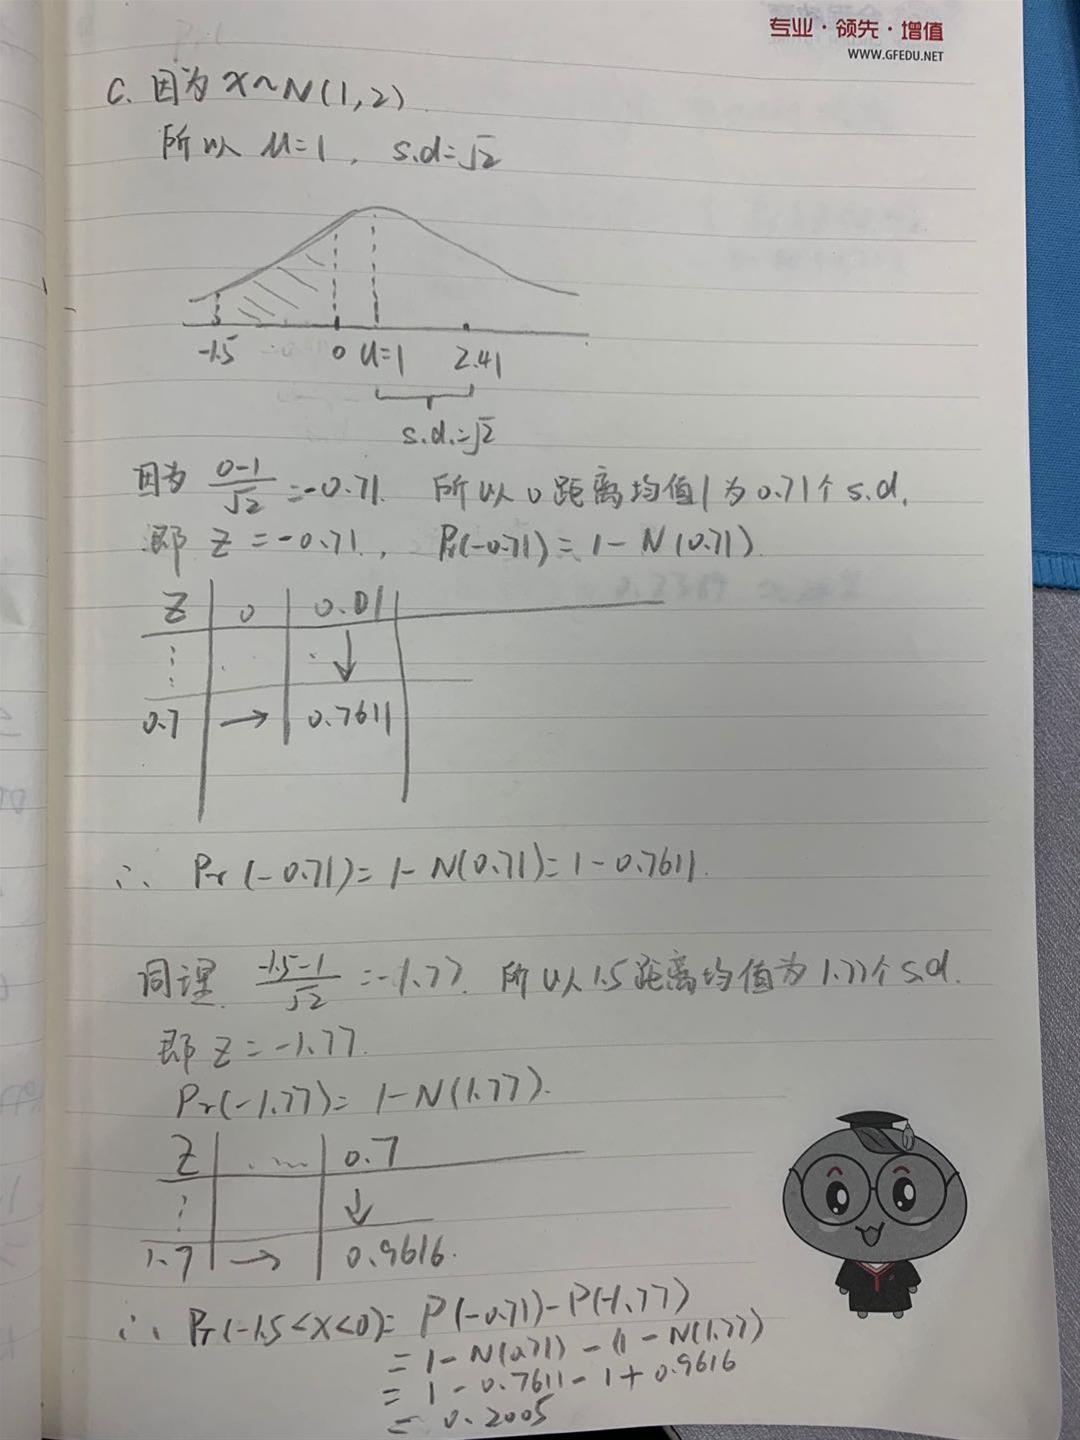 专业·领先·增值
WWW.GFEDU.NET
C. 因为 X~N(1,2)
所以 μ=1, s.d=√2
-1.5 0 μ=1 2.41
s.d.=√2
因为 (0-1)/√2 = -0.71. 所以 0 距离均值1为0.71个 s.d.
即 Z = -0.71, Pr(-0.71) = 1 - N(0.71)
Z 0 0.01
0.7 → 0.7611
∴ Pr(-0.71) = 1-N(0.71) = 1-0.7611.
同理. (-1.5-1)/√2 = -1.77. 所以1.5距离均值为1.77个s.d.
即 Z = -1.77.
Pr(-1.77) = 1-N(1.77).
Z ..... 0.7
1.7 → 0.9616.
∴ Pr(-1.5<X<0) = P(-0.71)-P(-1.77)
= 1-N(0.71) - (1-N(1.77))
= 1 - 0.7611 - 1 + 0.9616
= 0.2005